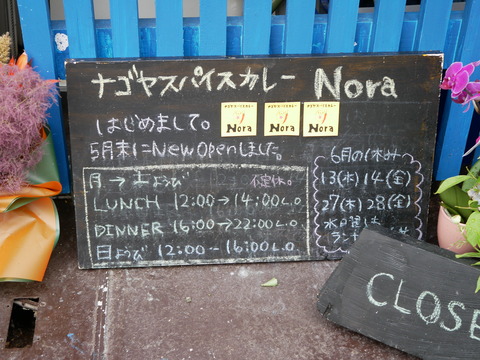 ナゴヤスパイスカレー Nora
Nora
Nora
Nora
はじめまして。
5月末にNew Openしました。
月→土ようび 不定休。
LUNCH 12:00→14:00 L.O
DINNER 16:00→22:00 L.O.
日ようび 12:00-16:00 L.O.
6月の休み
13(木) 14(金)
27(木) 28(金)
CLOSE